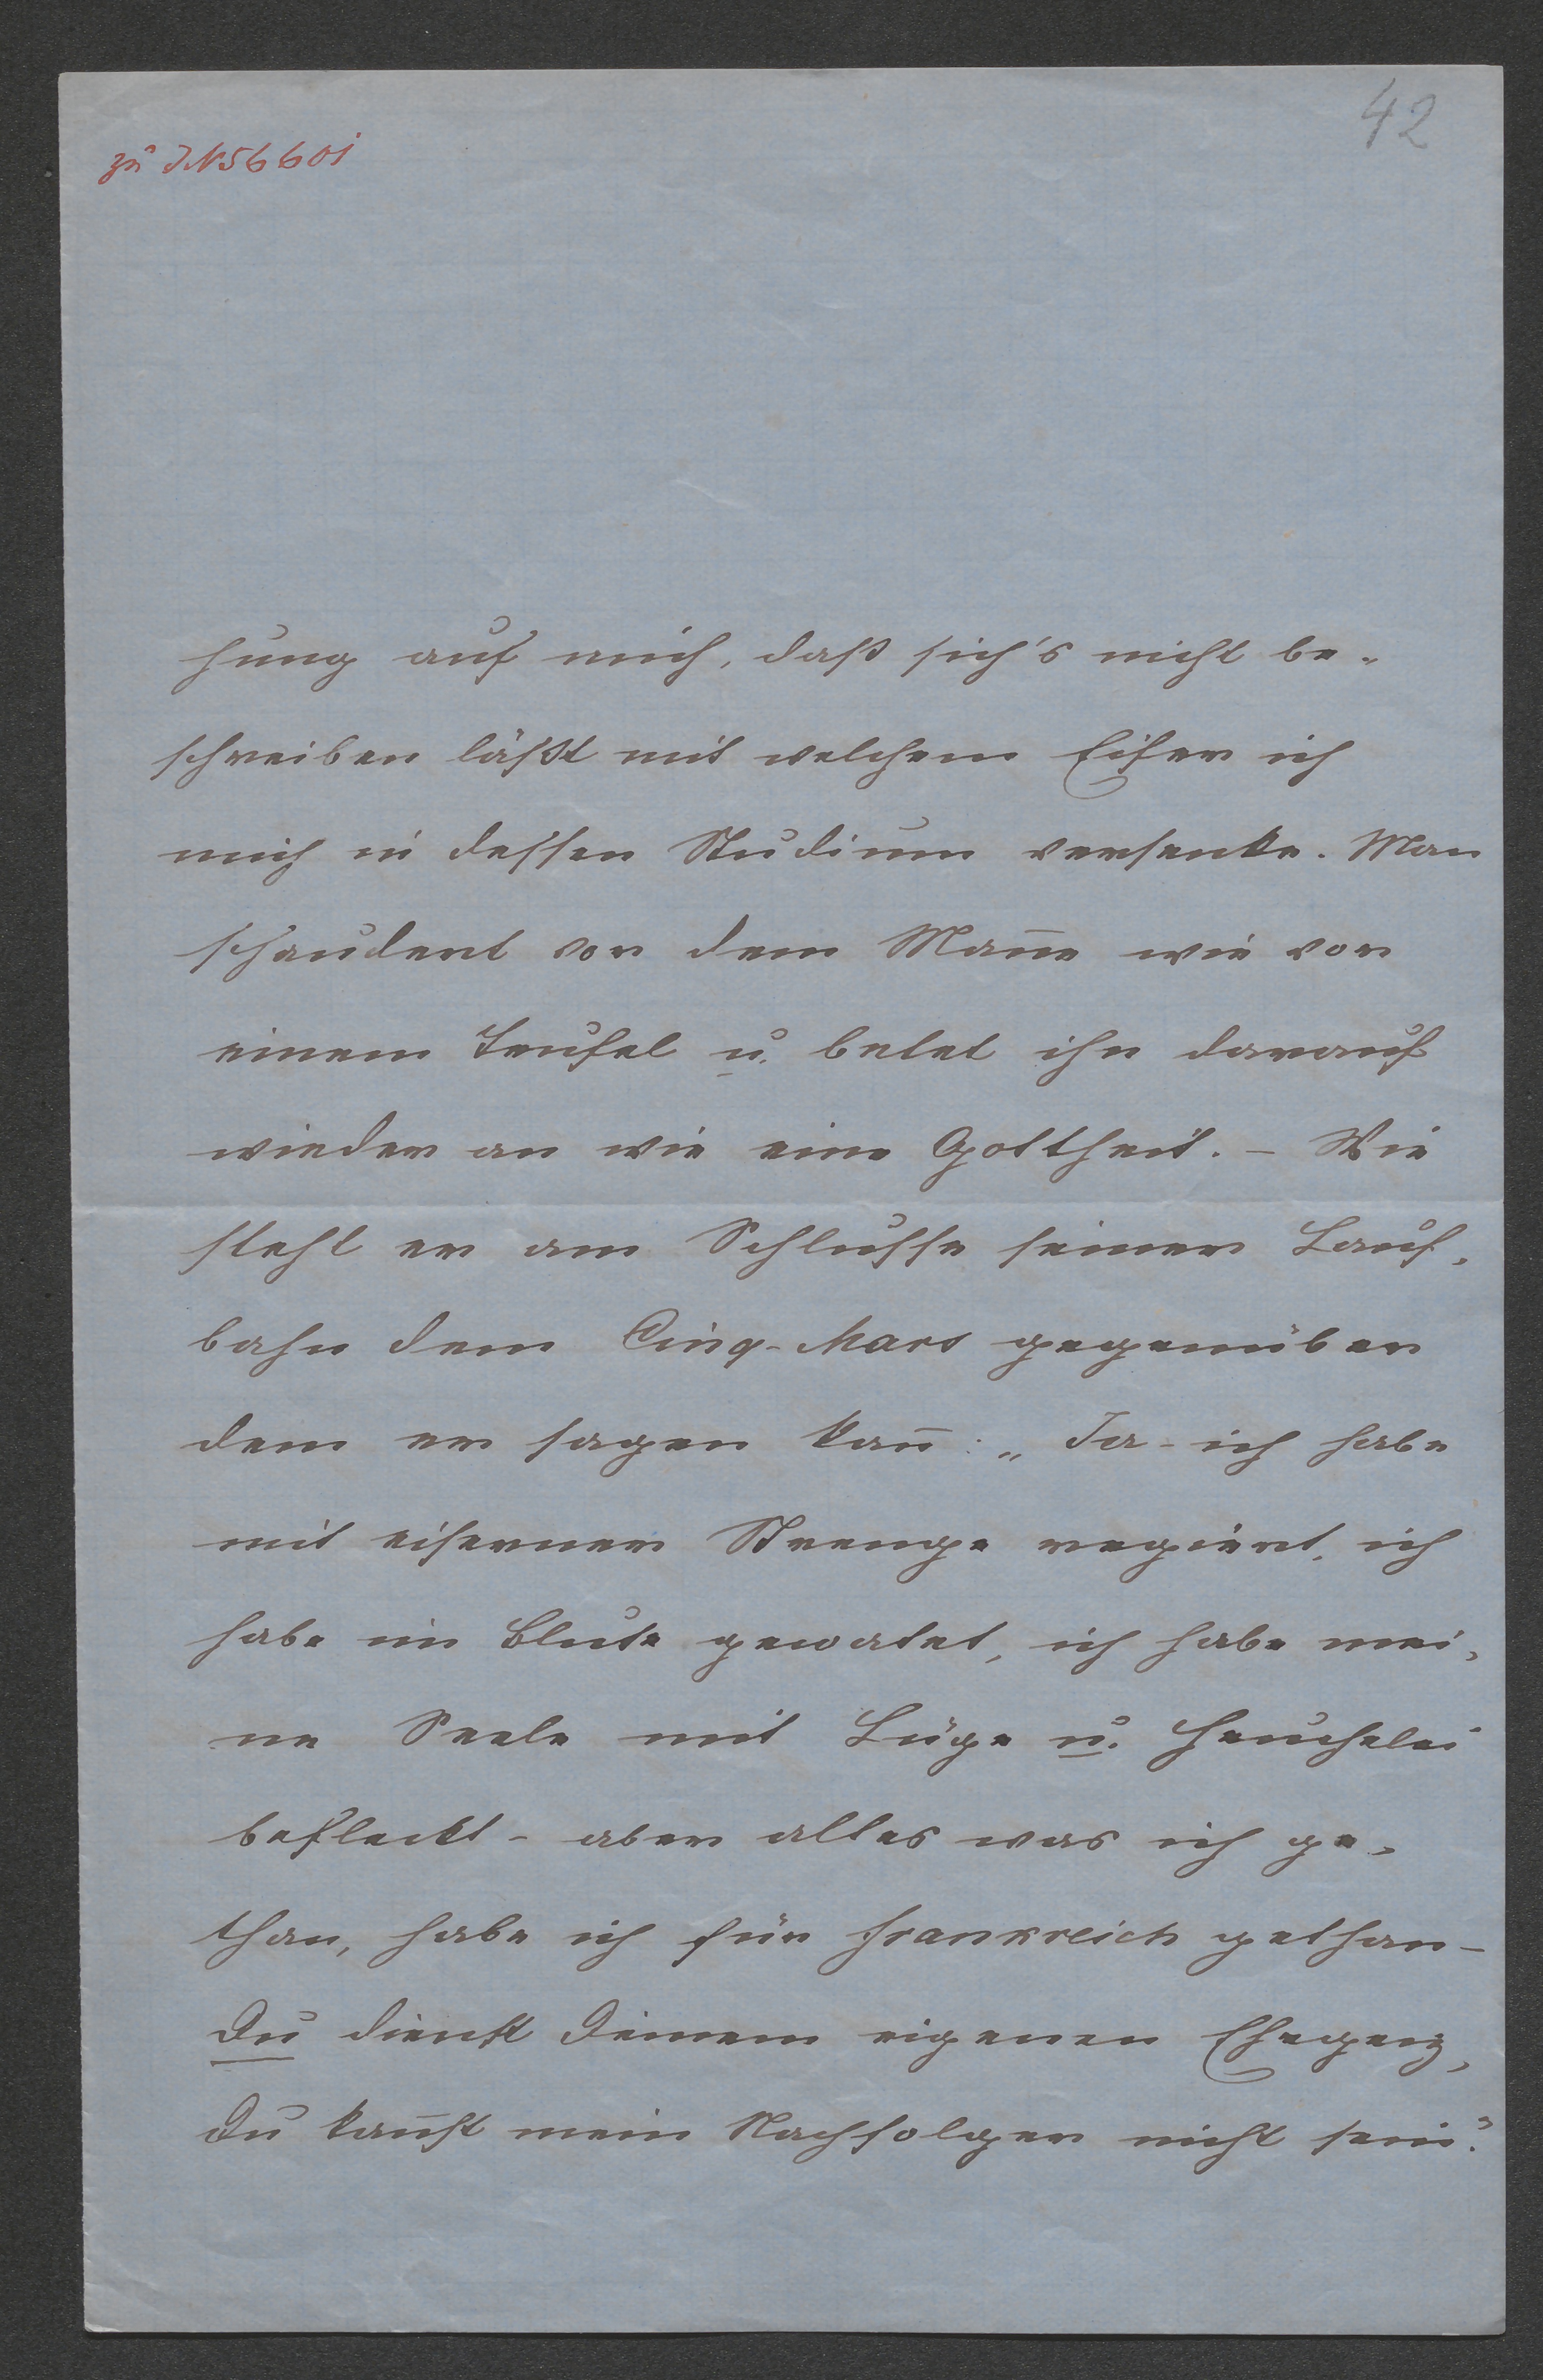 42
zu IN 56601
hung auf mich, daß sich's nicht be-
schreiben läßt mit welchem Eifer ich
mich in dessen Studium versenke. Man
schaudert vor dem Man̄e wie vor
einem Teufel u. betet ihn darauf
wieder an wie eine Gottheit. – Wie
steht er am Schlusse seiner Lauf-
bahn dem Cinq-Mars gegenüber
dem er sagen kan̄: „Ja – ich habe
mit eiserner Strenge regiert, ich
habe im Blute gewatet, ich habe mei-
ne Seele mit Lüge u. Heuchelei
befleckt – aber alles was ich ge-
than, habe ich für Frankreich gethan –
Du dienst Deinem eigenen Ehrgeiz,
Du kan̄st mein Nachfolger nicht sein."